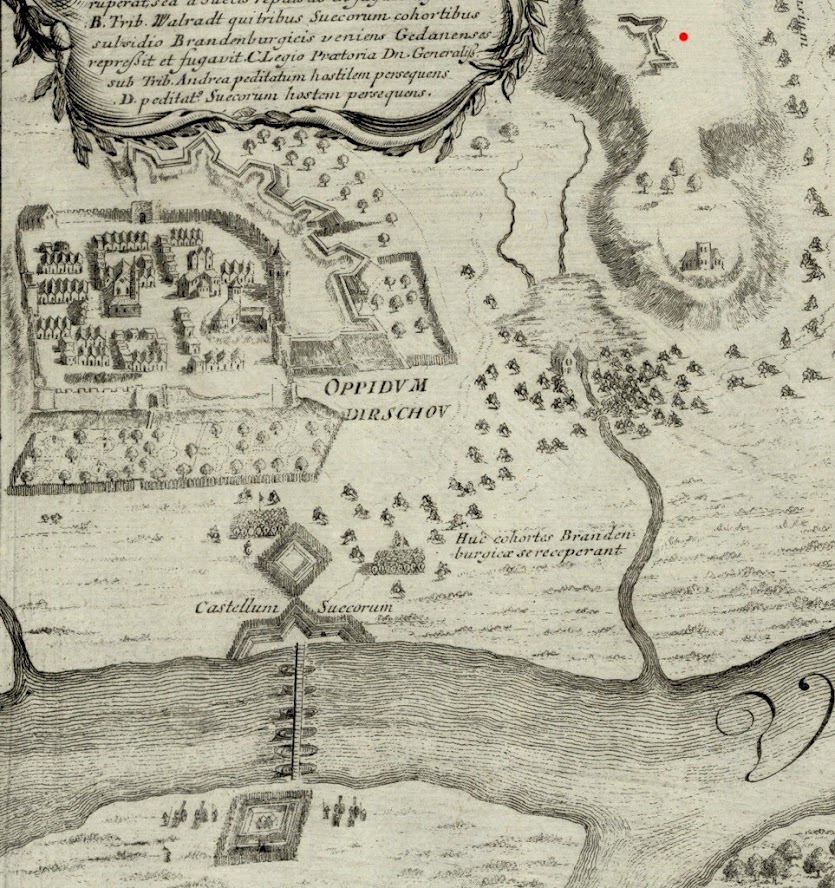 B. Trib. Walradt qui tribus Suecorum cohortibus
subsidio Brandenburgicis veniens Gedanenses
repressit et fugavit. C. Legio Prætoria Dn. Generaliss.
sub Trib. Andrea peditatum hostilem persequens
D. peditat. Suecorum hostem persequens.
OPPIDVM
DIRSCHOV
Huc cohortes Branden-
burgicæ se receperant
Castellum Suecorum